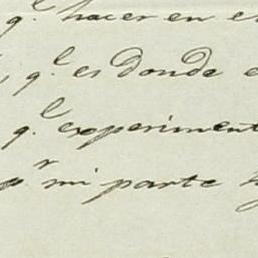 q.^l hacer en e
q.^l es donde e
q.^l experiment
p.^r mi parte h